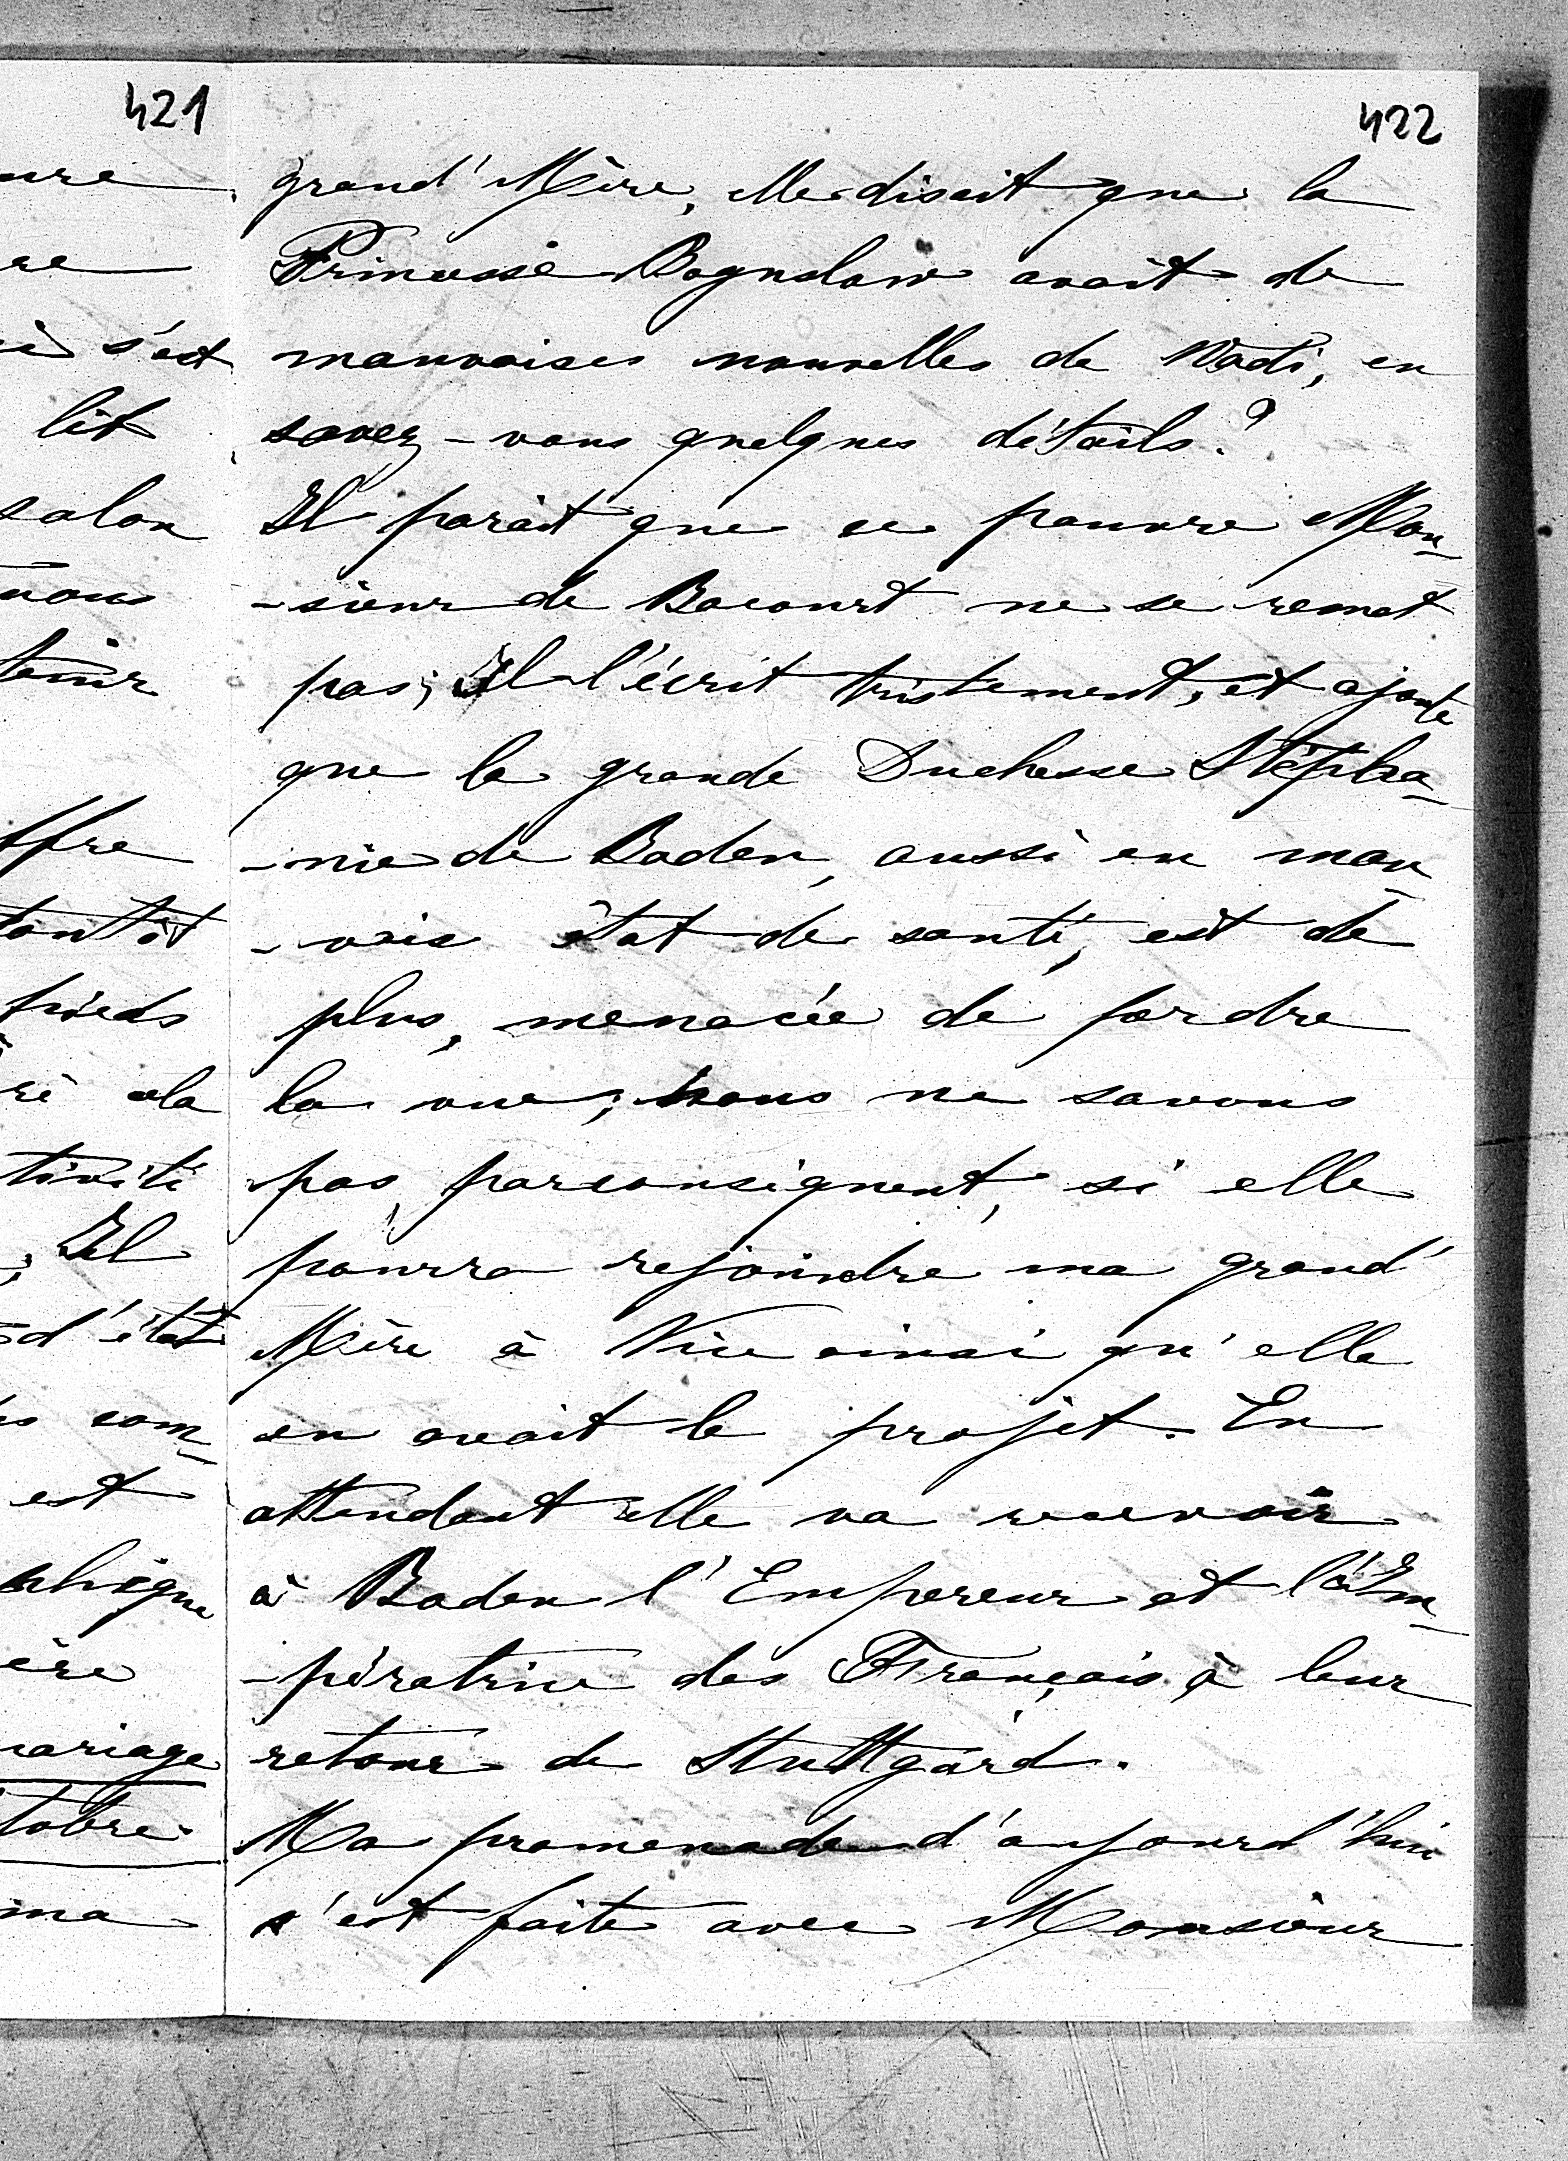 421
ure
re
s'est
lit
salon
nous
tenir
ffre
tantôt
pieds
ré la
tivité
; Il
d'état
com-
est
ère
mariage
tobre.
ma
422
grand'Mère, elle disait que la
Princesse Boguslaw avait de
mauvaises nouvelles de Wadi, en
savez-vous quelques détails?
Il parait que ce pauvre Mon-
-sieur de Bacourt ne se remet
pas; Il l'écrit tristement, et ajoute
que la grande Duchesse Stépha-
-nie de Baden, aussi en mau-
-vais état de santé, est de
plus, menacée de perdre
la vue; nous ne savons
pas, parconséquent, si elle
pourra rejoindre ma grand'
Mère à Nice ainsi qu'elle
en avait le projet. En
attendant elle va recevoir
à Baden l'Empereur et l'Im-
-pératrice des Français à leur
retour de Stuttgard.
Ma promenade d'aujourd'hui
s'est faite avec Monsieur